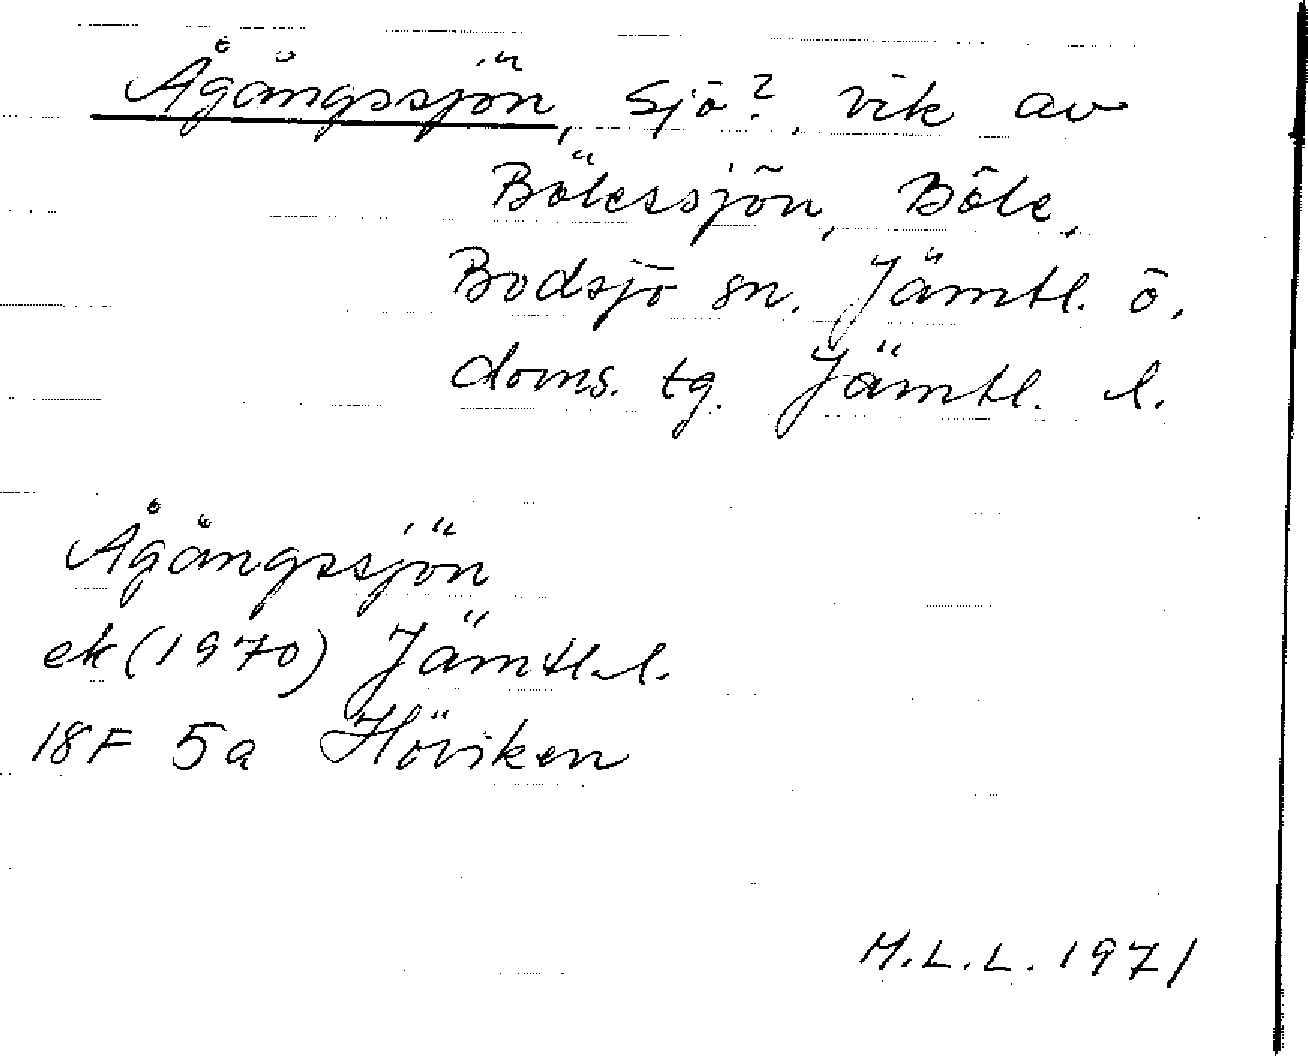 Ågångssjön, sjö?, vik av
Bölessjön, Böle,
Bodsjö sn. Jämtl. ö.
doms. tg. Jämtl. l.
Ågångssjön
ek (1970) Jämtl. l.
18F 5a Höviken
M.L.L. 1971